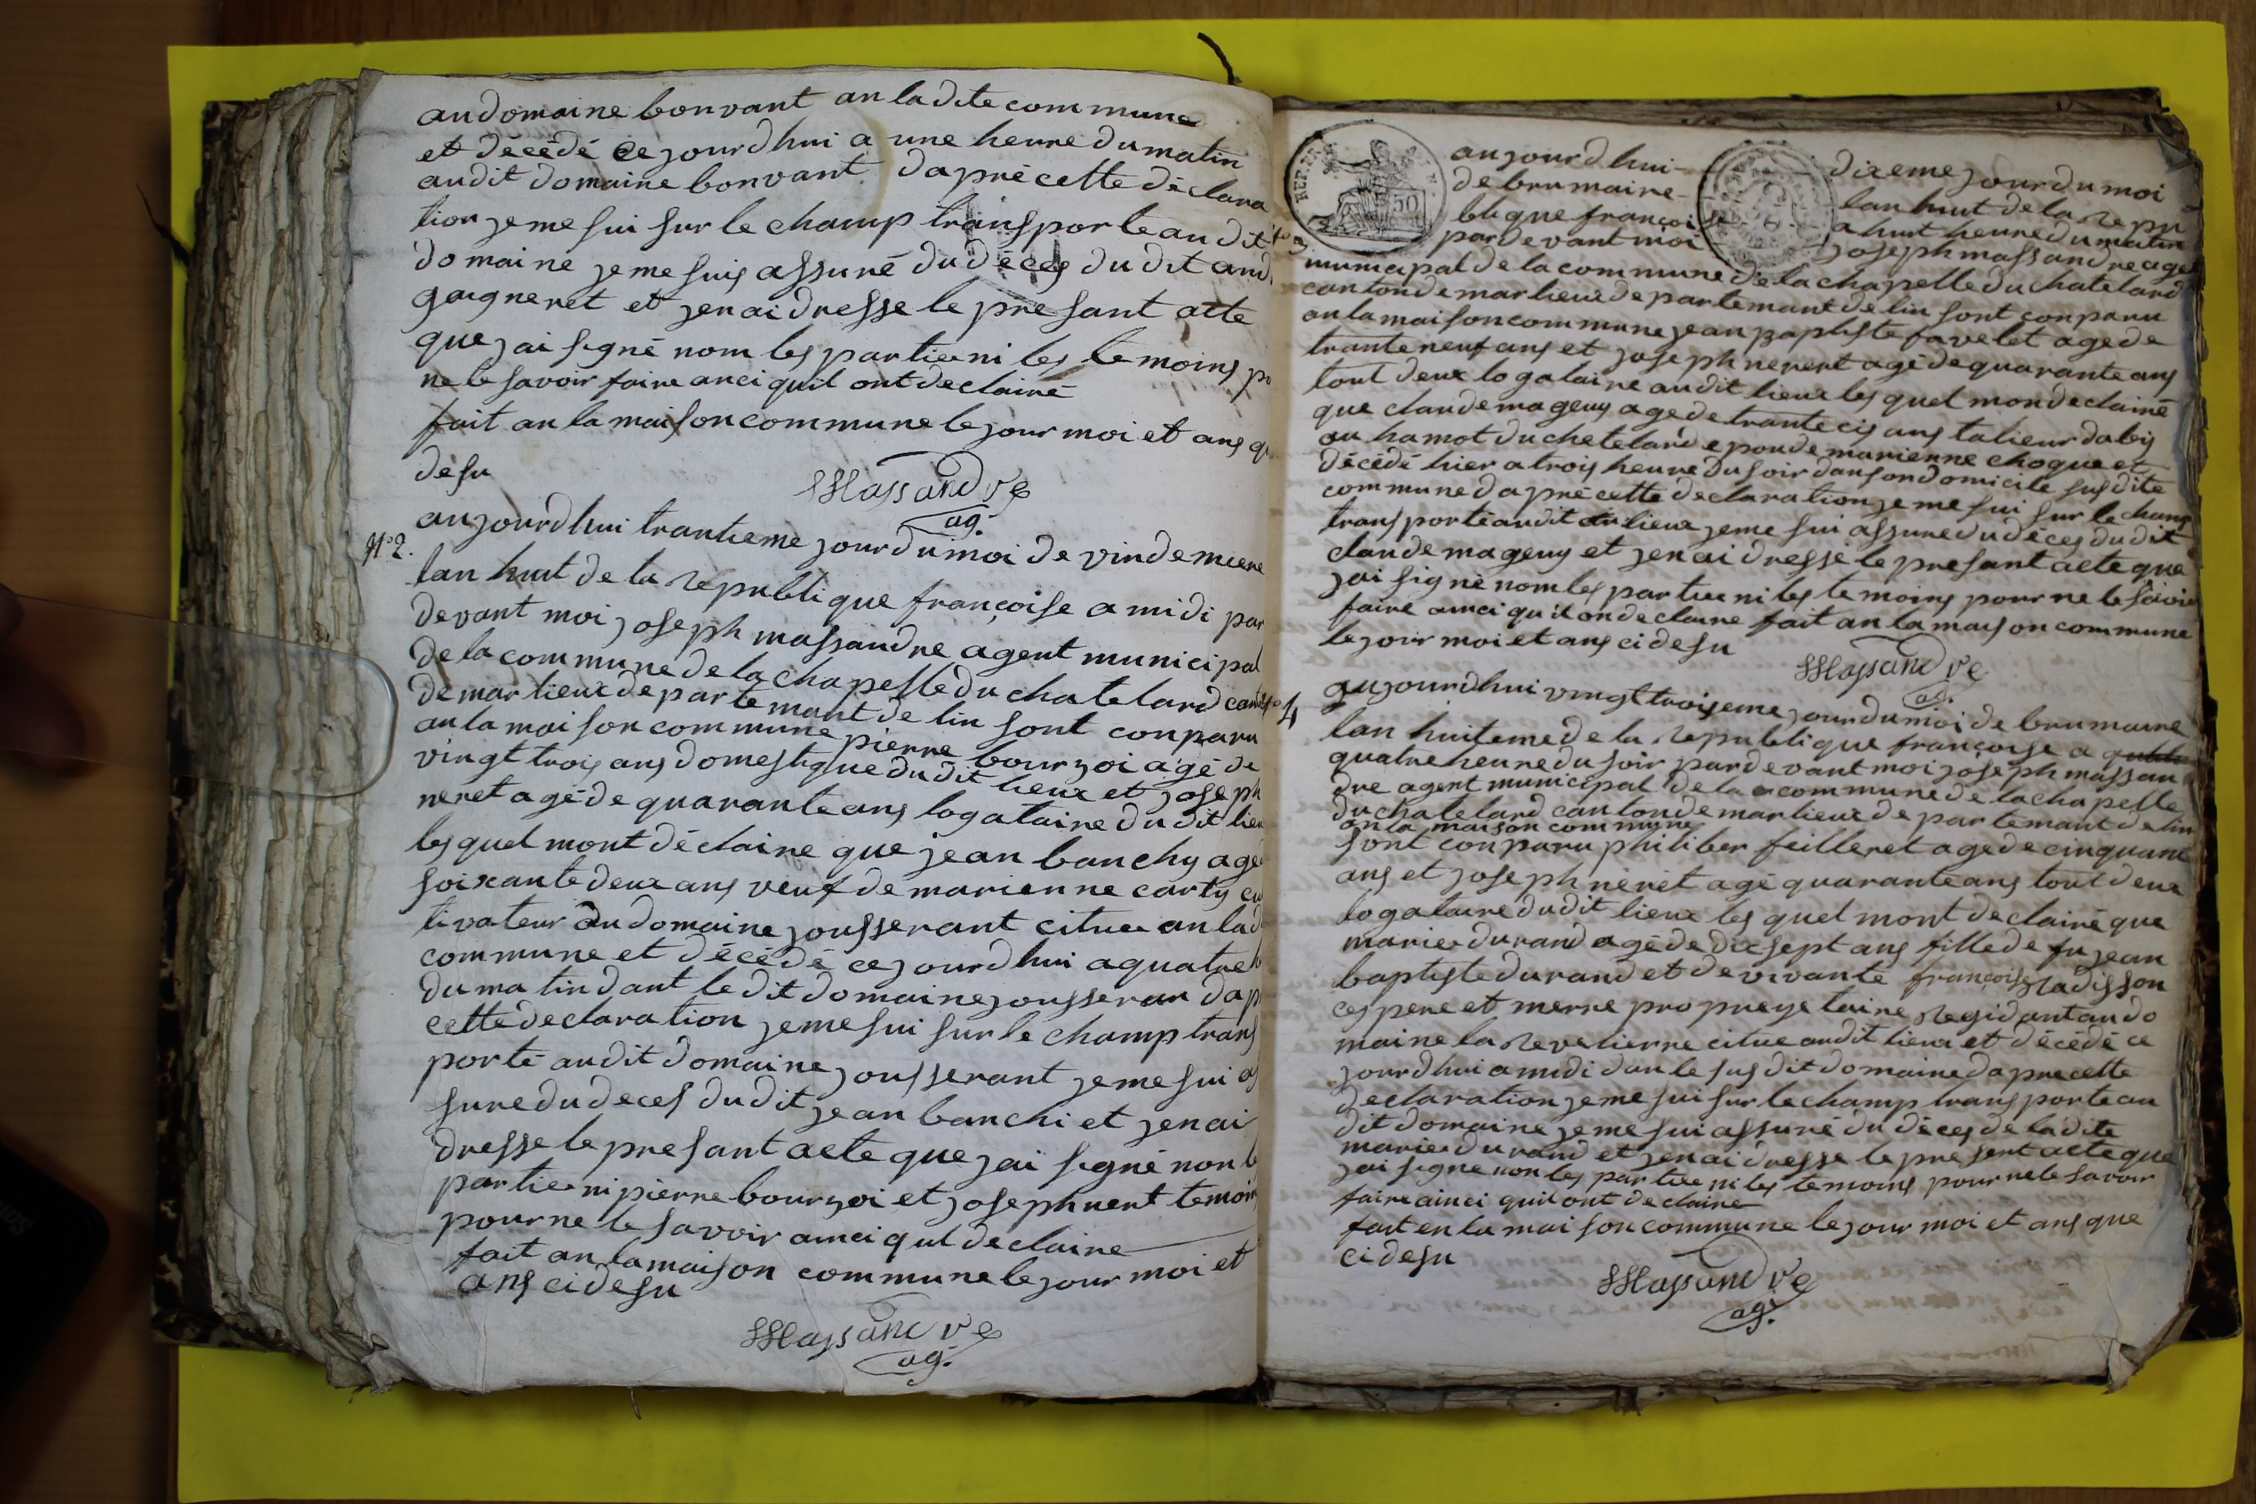 au domaine bonvant an la dite commune
et décédé ce jourdhui a une heure du matin
audit domaine bonvant dapré cette déclara
tion je me sui sur le champ transporte au dit
domaine je me suis assuré du déces du dit and
gaigneret et jen ai dresse le presant acte
que jai signé nom les partie ni les temoins po
ne le savoir faire anci quil ont declairé
fait an la maison commune le jour moi et ans q
desu
Massandre
ag.
N°2.
aujourdhui trantieme jour du moi de vindemiere
lan huit de la republique françoise a midi par
devant moi joseph massandre agent municipal
de la commune de la chapelle du chatelard can
de marlieux departemant de lin sont conparu
an la maison commune pierre bourjoi agé de
vingt trois ans domestique du dit lieux et joseph
neret agé de quarante ans logataire du dit lieu
les quel mont déclaire que jean banchy age
soixante deux ans veuf de marienne carty cu
tivateur au domaine jousserant cituee an lad
commune et décédé ce jourdhui a quatre h
du matin dant le dit domaine jousseran dap
cette declaration je me sui sur le champ trans
porté audit domaine jousserant je me sui as
sure du deces dudit jean banchi et jen ai
dresse le presant acte que jai signé non l
partie ni pierre bourjoi et joseph neret temoin
pour ne le savoir ainci quil declaire
fait an la maison commune le jour moi et
ans ci desu
Massandre
ag.
REPUB
50
aujourdhui dixeme jour du moi
de brumaire lan huit de la repu
blique françoise a huit heure du matin
pardevant moi joseph massandre age
municipal de la commune de la chapelle du chatelard
canton de marlieux departemant de lin sont conparu
an la maison commune jean baptiste favelet age de
trante neuf ans et joseph neret agé de quarante ans
tout deux logataire audit lieux les quel mon declairé
que claude mageny age de trante cis ans talieur dabis
au hamot du chatelard epou de marienne choquet
décédé hier a trois heure du soir dan son domicile susdite
commune dapré cette declaration je me sui sur le champ
transporté audit lieux je me sui assure du deces du dit
claude mageny et jen ai dresse le presant acte que
jai signé nom les partie ni les temoins pour ne le savoir
faire ainci quil on declaire fait an la maison commune
le jour moi et ans ci desu
Massandre
ag.
4
aujourdhui vingt troiseme jour du moi de brumaire
lan huiteme de la republique françoise a
quatre heure du soir pardevant moi joseph massan
dre agent municipal de la commune de la chapelle
du chatelard canton de marlieux departemant de lin
an la maison commune
sont conparu philiber feilleret age de cinquant
ans et joseph neret agé quarante ans tout deux
logataire dudit lieux les quel mont declairé que
marie durand agé de dix sept ans fille de fu jean
baptiste durand et de vivante françoise radisson
ces pere et merre propreyetaire residant au do
maine la revelierre citue audit lieux et décédé ce
jourdhui a midi dan le susdit domaine dapre cette
declaration je me sui sur le champ transporte au
dit domaine je me sui assuré du déces de ladite
marie durand et jen ai dresse le present acte que
jai signe non les partie ni les temoins pour ne le savoir
faire ainci quil ont declaire
fait en la maison commune le jour moi et ans que
ci desu
Massandre
ag.